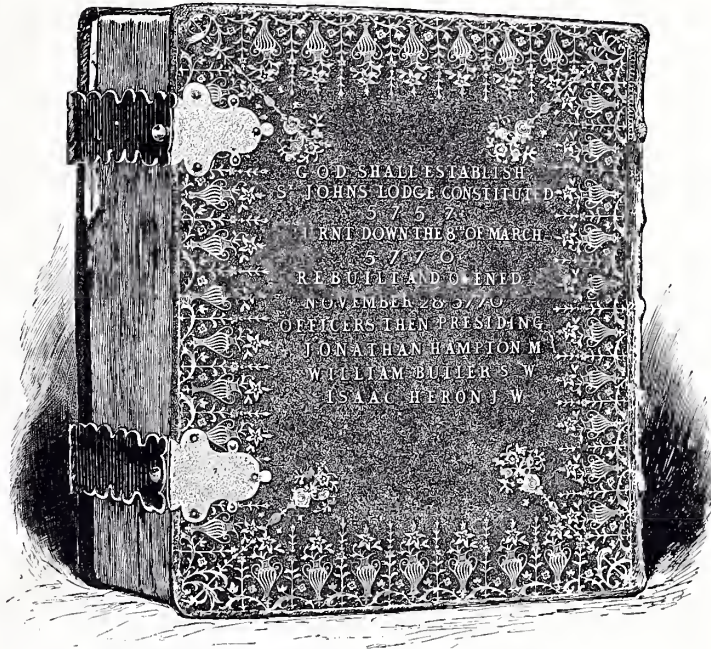 GOD SHALL ESTABLISH
ST JOHNS LODGE CONSTITUTED
5757
DOWN THE 8TH OF MARCH
5770
REBUILT AND OPENED
NOVEMBER 28 5770
OFFICERS THEN PRESIDING
JONATHAN HAMPTON M
WILLIAM BUTLER S W
ISAAC HERON J W